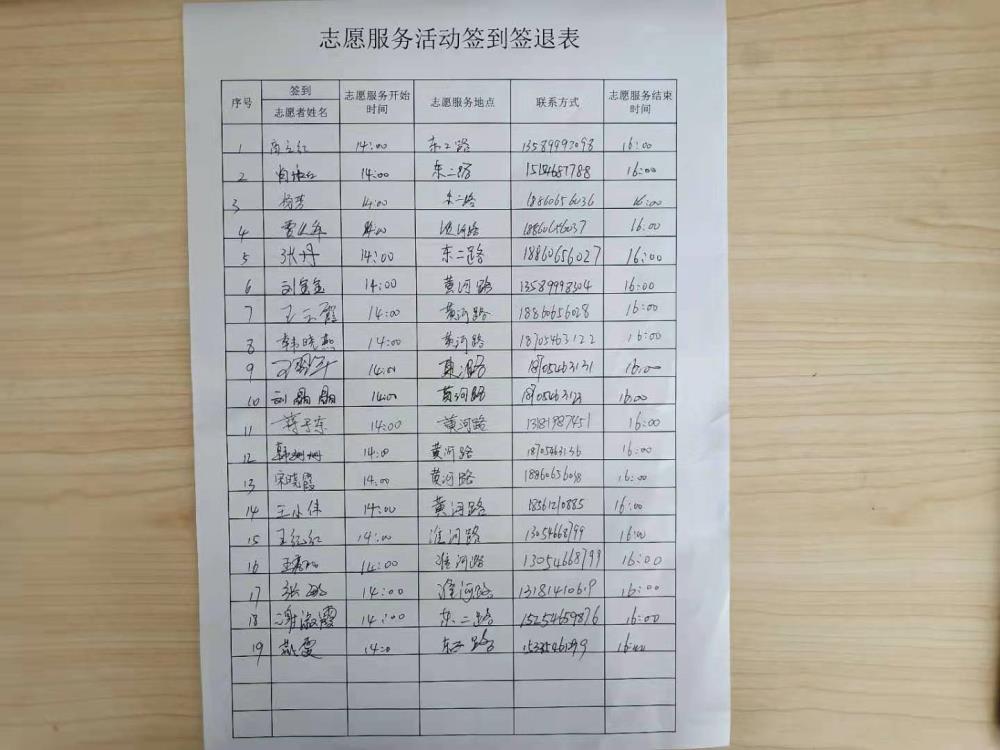 志愿服务活动签到签退表
序号 签到 志愿服务开始时间 志愿服务地点 联系方式 志愿服务结束时间
志愿者姓名
1 14:00 东二路 16:00
2 14:00 东二路 16:00
3 14:00 东二路 18860656036 16:00
4 14:00 18860656037 16:00
5 张丹 14:00 东二路 18860656027 16:00
6 刘金金 14:00 黄河路 13589998304 16:00
7 王玉霞 14:00 黄河路 18860656028 16:00
8 韩晓燕 14:00 黄河路 18705463122 16:00
9 14:00 黄河路 18705463131 16:00
10 刘晶晶 14:00 黄河路 16:00
11 蒋子东 14:00 黄河路 13181987451 16:00
12 韩姗姗 14:00 黄河路 18705463136 16:00
13 宋晓霞 14:00 黄河路 16:00
14 王小伟 14:00 黄河路 18561210885 16:00
15 王纪红 14:00 淮河路 13054668799 16:00
16 14:00 淮河路 13054668799 16:00
17 14:00 淮河路 13181410619 16:00
18 谢淑霞 14:00 东二路 15254659876 16:00
19 燕雯 东二路